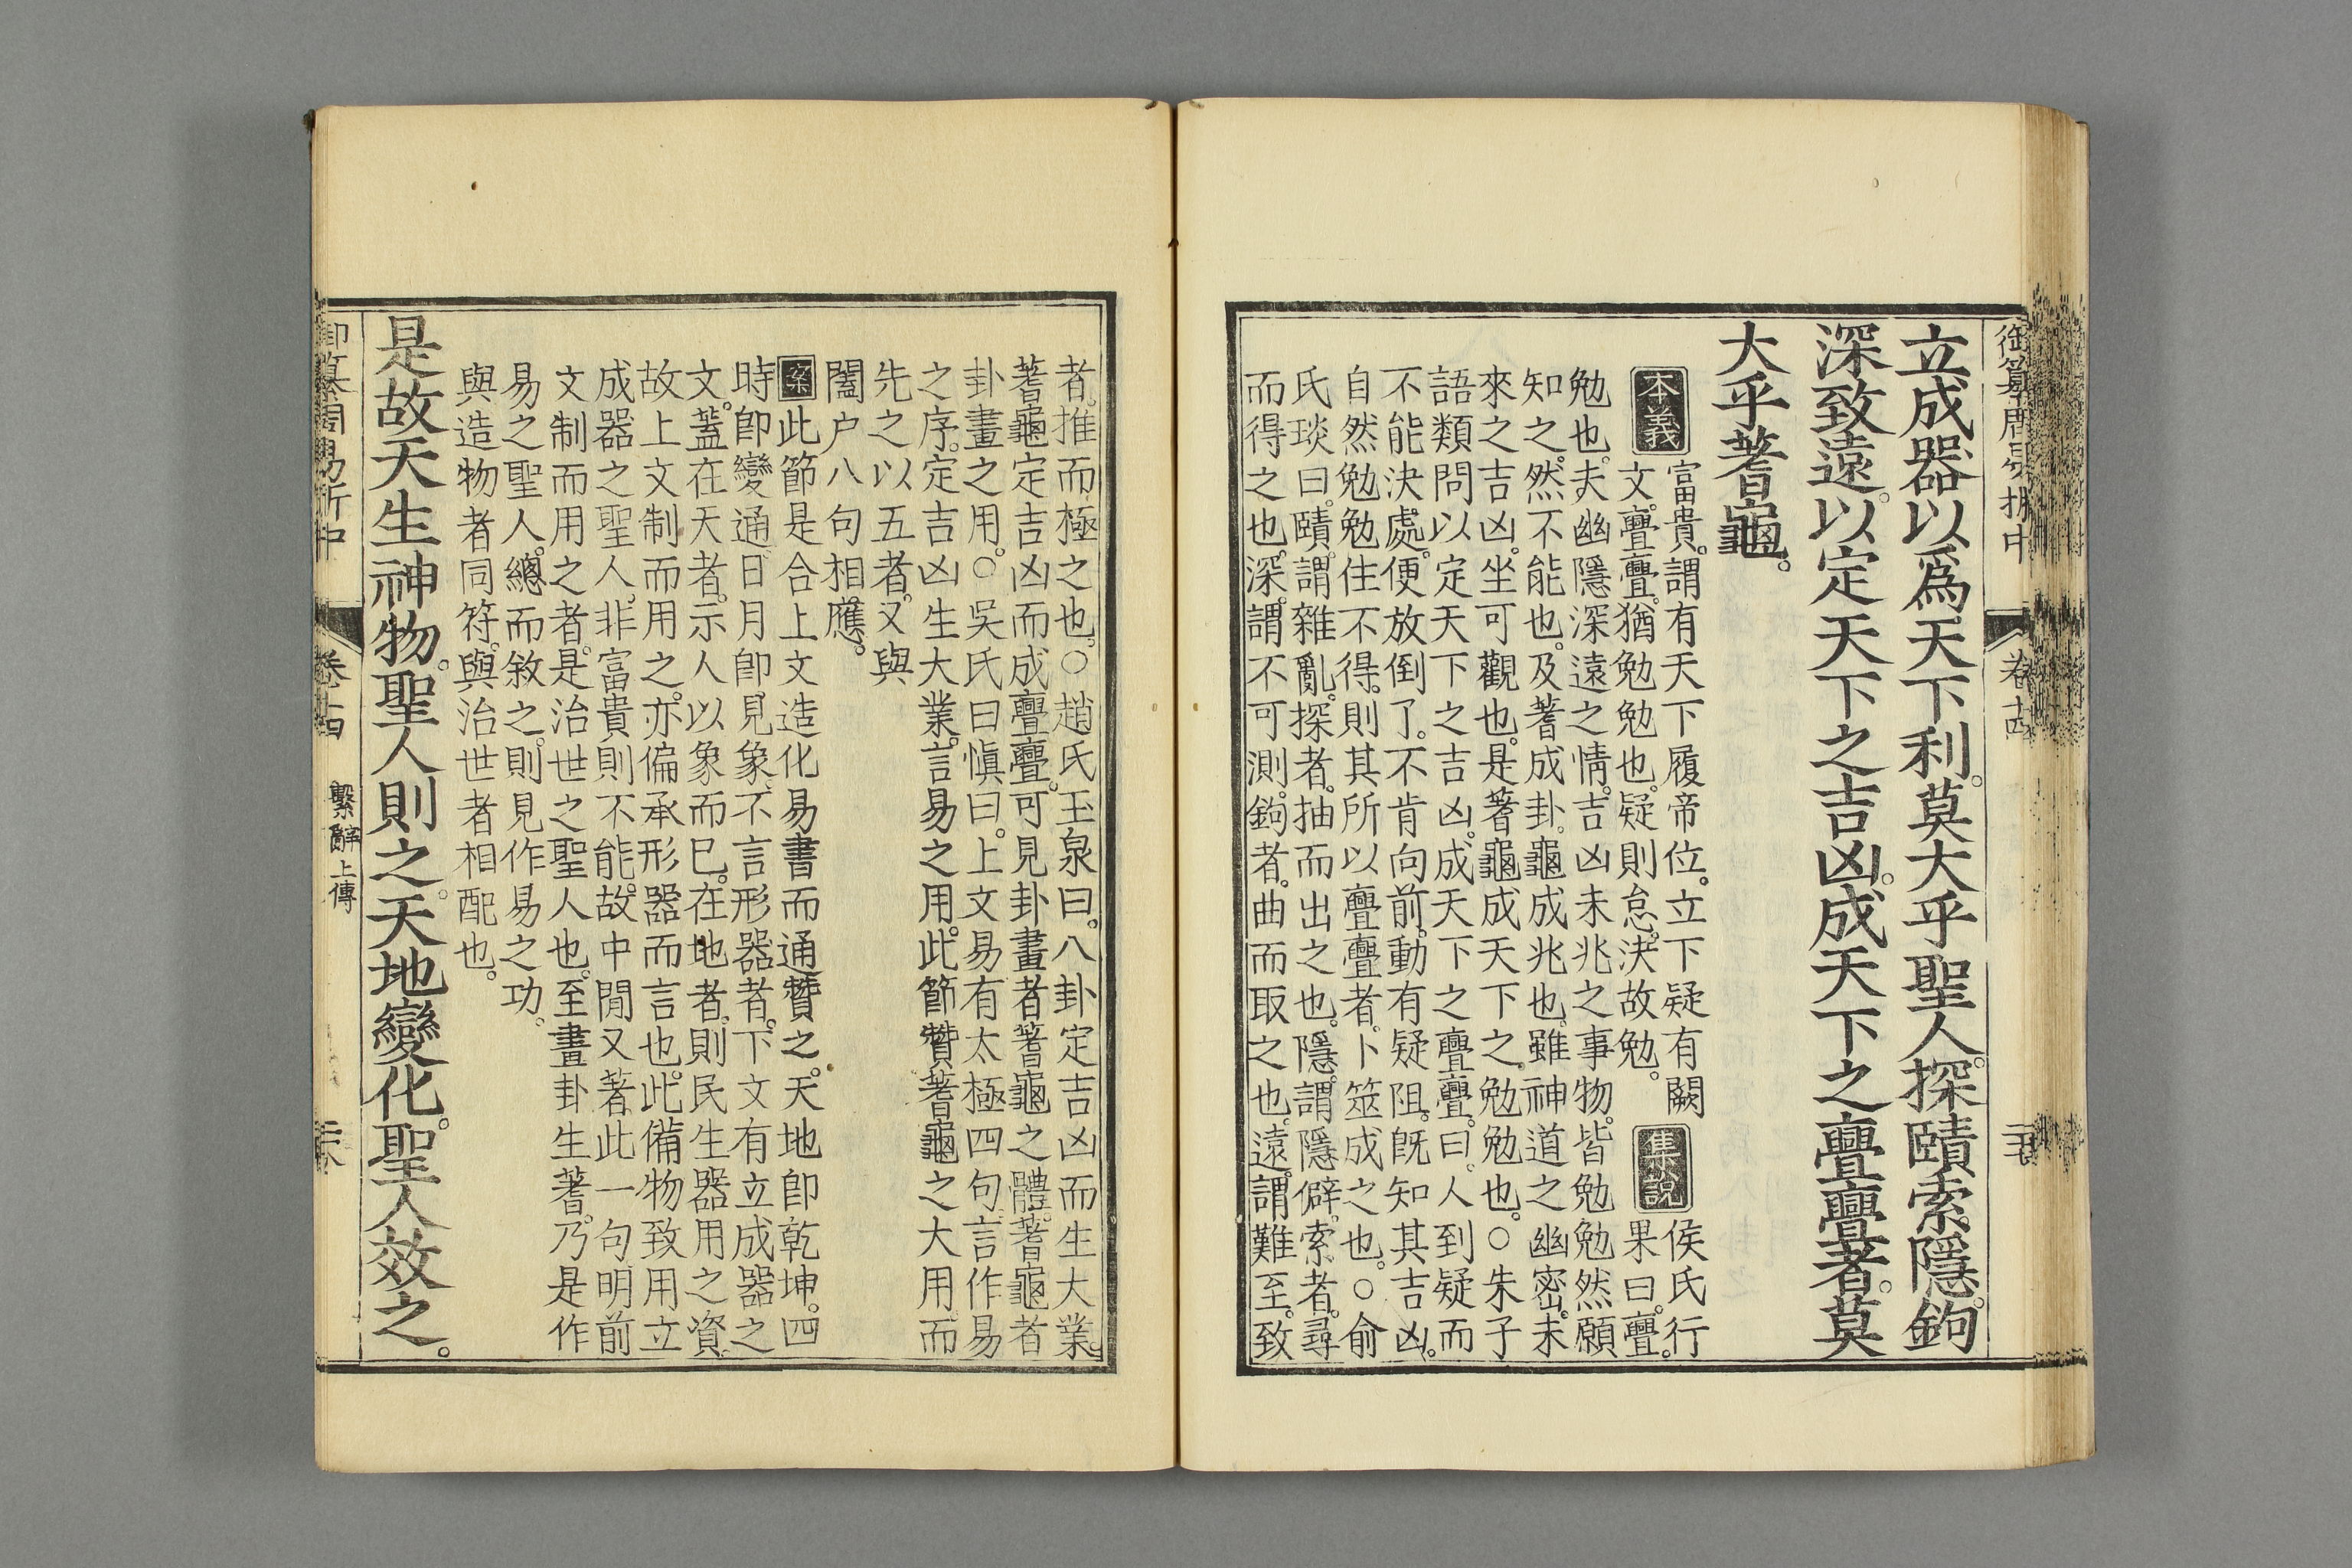 御纂周易折中 卷十四
立成器以爲天下利。莫大乎聖人。探賾索隱。鉤
深致遠。以定天下之吉凶。成天下之亹亹者。莫
大乎蓍龜。
本義
富貴。謂有天下履帝位。立下疑有闕
文。亹亹。猶勉勉也。疑則怠。決故勉。
集說
侯氏行
果曰。亹。
勉也。夫幽隱深遠之情。吉凶未兆之事物。皆勉勉然願
知之。然不能也。及蓍成卦。龜成兆也。雖神道之幽密。未
來之吉凶。坐可觀也。是蓍龜成天下之勉勉也。○朱子
語類問以定天下之吉凶。成天下之亹亹。曰。人到疑而
不能決處。便放倒了。不肯向前。動有疑阻。旣知其吉凶。
自然勉勉住不得。則其所以亹亹者。卜筮成之也。○俞
氏琰曰。賾。謂雜亂。探者。抽而出之也。隱。謂隱僻。索者。尋
而得之也。深。謂不可測。鉤者。曲而取之也。遠。謂難至。致
者。推而極之也。○趙氏玉泉曰。八卦定吉凶而生大業。
蓍龜定吉凶而成亹亹。可見卦畫者蓍龜之體。蓍龜者
卦畫之用。○吳氏曰愼曰。上文易有太極四句。言作易
之序。定吉凶生大業。言易之用。此節贊蓍龜之大用。而
先之以五者。又與
闔戶八句相應。
案此節是合上文造化易書而通贊之。天地卽乾坤。四
時卽變通。日月卽見象。不言形器者。下文有立成器之
文。蓋在天者。示人以象而已。在地者。則民生器用之資。
故上文制而用之。亦偏承形器而言也。此備物致用立
成器之聖人。非富貴則不能。故中閒又著此一句。明前
文制而用之者。是治世之聖人也。至畫卦生蓍。乃是作
易之聖人。總而敘之。則見作易之功。
與造物者同符。與治世者相配也。
是故天生神物。聖人則之。天地變化。聖人效之。
御纂周易折中 卷十四 繫辭上傳